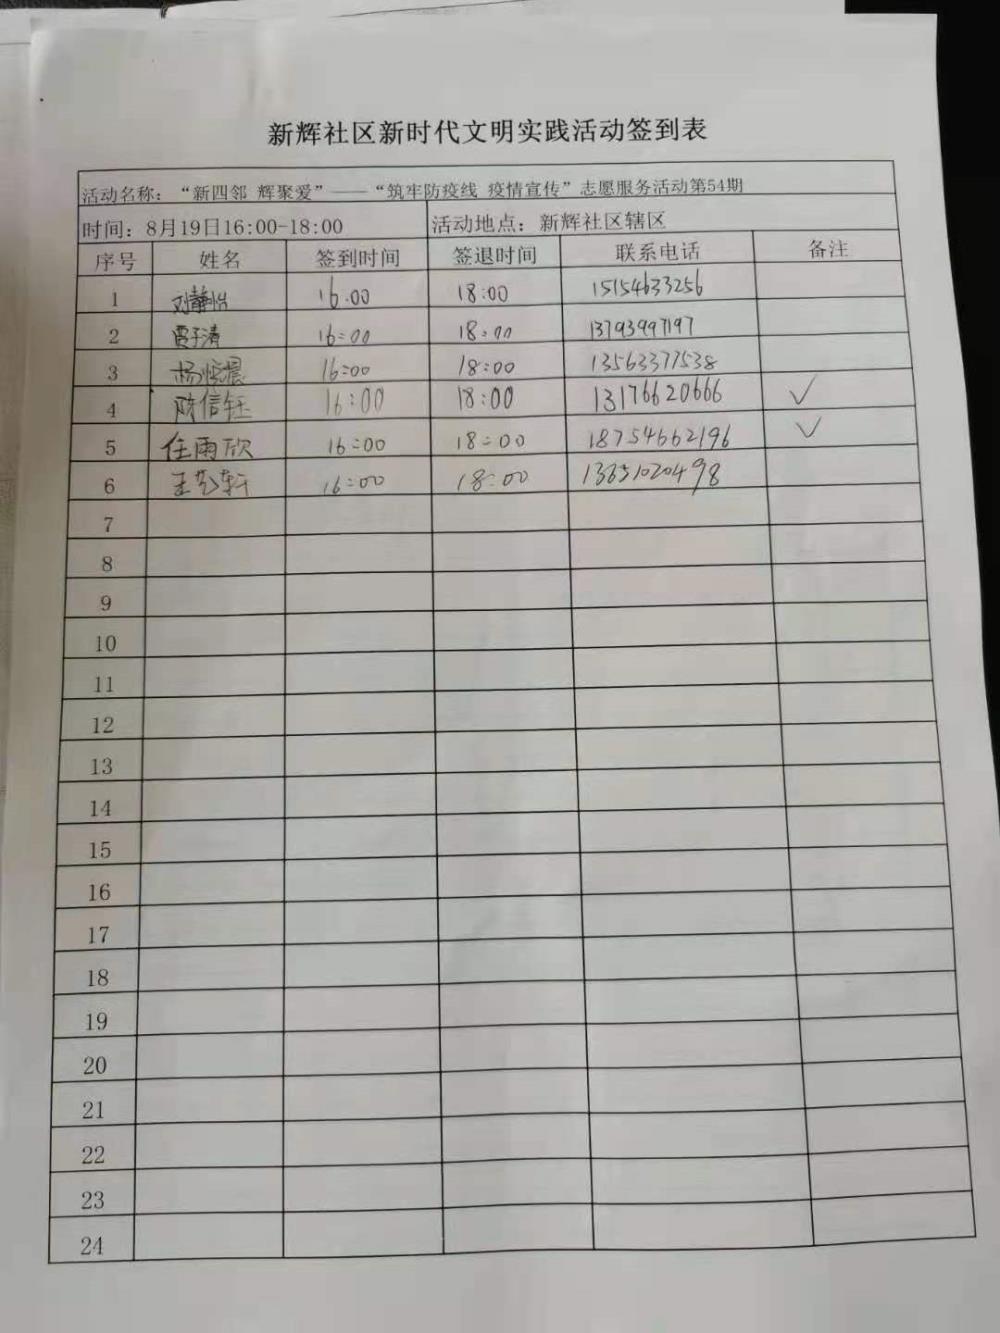 新辉社区新时代文明实践活动签到表
活动名称：“新四邻 辉聚爱”——“筑牢防疫线 疫情宣传”志愿服务活动第54期
时间：8月19日16:00-18:00 活动地点：新辉社区辖区
序号 姓名 签到时间 签退时间 联系电话 备注
1 刘静怡 16.00 18:00 15154633256
2 贾子清 16:00 18:00 13793997197
3 杨悦晨 16:00 18:00 13563377538
4 陈信钰 16:00 18:00 13176620666 ✓
5 任雨欣 16:00 18:00 18754662196 ✓
6 王艺轩 16:00 18:00
7
8
9
10
11
12
13
14
15
16
17
18
19
20
21
22
23
24